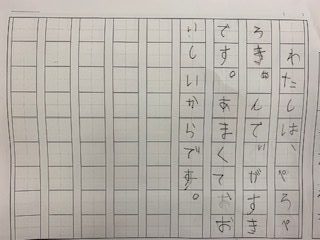 わたしは、ぺろぺ
ろきゃんでぃがすき
です。あまくてお
いしいからです。